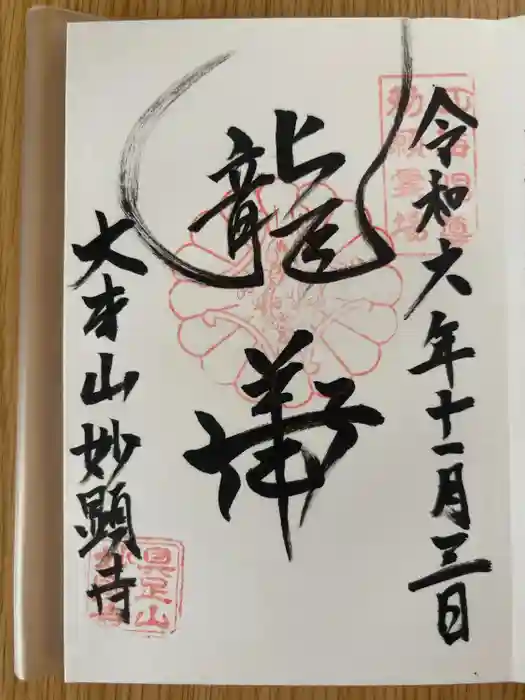 四海唱導
勅願霊場
令和六年十一月三日
龍華
大本山妙顕寺
具足山